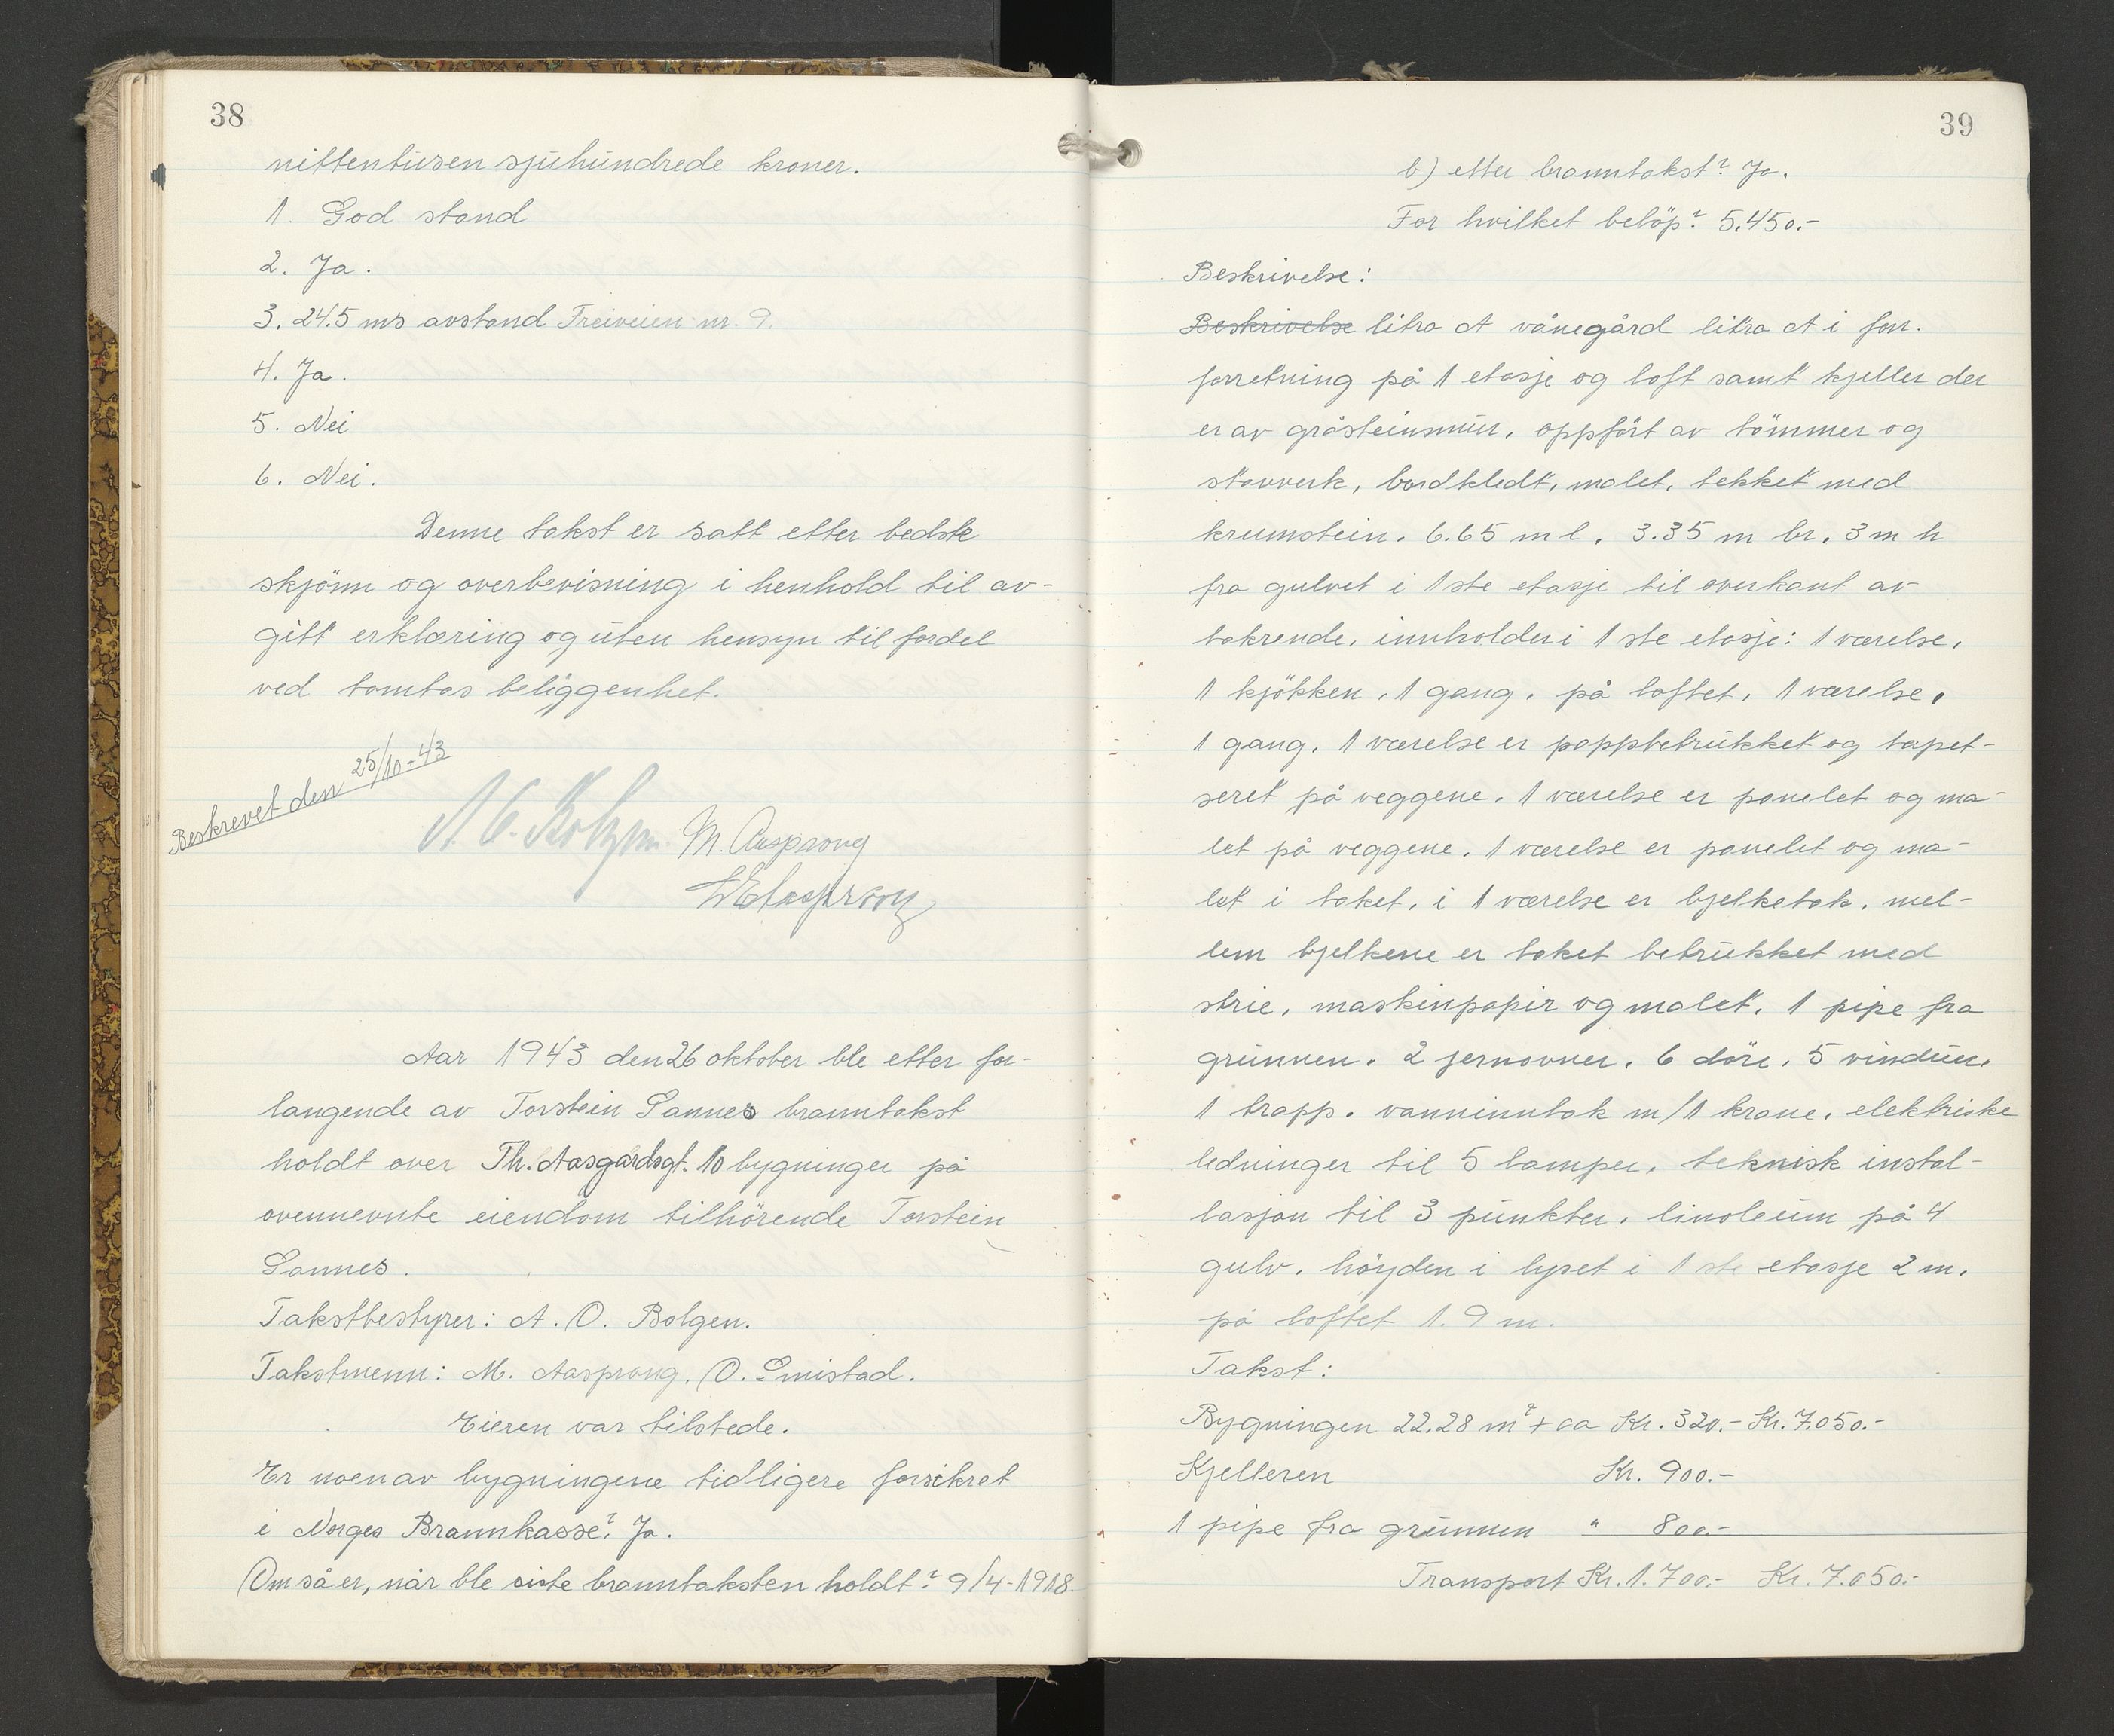 38
nittentusen sjuhundrede kroner.
1. God stand
2. Ja.
3. 24.5 ms avstand Freiveien nr. 9.
4. Ja.
5. Nei
6. Nei.
Denne takst er satt etter bedste
skjönn og overbevisning i henhold til av-
gitt erklæring og uten hensyn til fordel
ved tomtas beliggenhet.
Beskrevet den 25/10-43
M. Aasprong
Aar 1943 den 26 oktober ble etter for-
langende av Torstein Sannes branntakst
holdt over Th. Aasgårdsgt. 10 bygninger på
ovennevnte eiendom tilhörende Torstein
Sannes.
Takstbestyrer: A. O. Bolgen.
Takstmenn: M. Aasprong, O. Smistad.
Eieren var tilstede.
Er noen av bygningene tidligere forsikret
i Norges Brannkasse? Ja.
Om så er, når ble siste branntaksten holdt? 9/4-1918.
39
b) etter branntakst? Ja.
For hvilket belöp? 5.450.-
Beskrivelse:
Beskrivelse litra A vånegård litra A i forr.
forretning på 1 etasje og loft samt kjeller der
er av gråsteinsmur, oppfört av tömmer og
stavverk, bordkledt, malet, tekket med
krumstein. 6.65 m l. 3.35 m br. 3 m h
fra gulvet i 1 ste etasje til overkant av
takrende, innholder i 1 ste etasje: 1 værelse,
1 kjökken, 1 gang, på loftet, 1 værelse,
1 gang. 1 værelse er pappbetrukket og tapet-
seret på veggene. 1 værelse er panelet og ma-
let på veggene. 1 værelse er panelet og ma-
let i taket, i 1 værelse er bjelketak, mel-
lem bjelkene er taket betrukket med
strie, maskinpapir og malet. 1 pipe fra
grunnen. 2 jernovner. 6 döre. 5 vinduer.
1 trapp. vanninntak m/1 krane. elektriske
ledninger til 5 lamper. teknisk instal-
lasjon til 3 punkter. linoleum på 4
gulv. höyden i lyset i 1 ste etasje 2 m.
på loftet 1.9 m.
Takst:
Bygningen 22.28 m² + ca Kr. 320.- Kr. 7.050.-
Kjelleren Kr. 900.-
1 pipe fra grunnen " 800.-
Transport Kr. 1.700.- Kr. 7.050.-